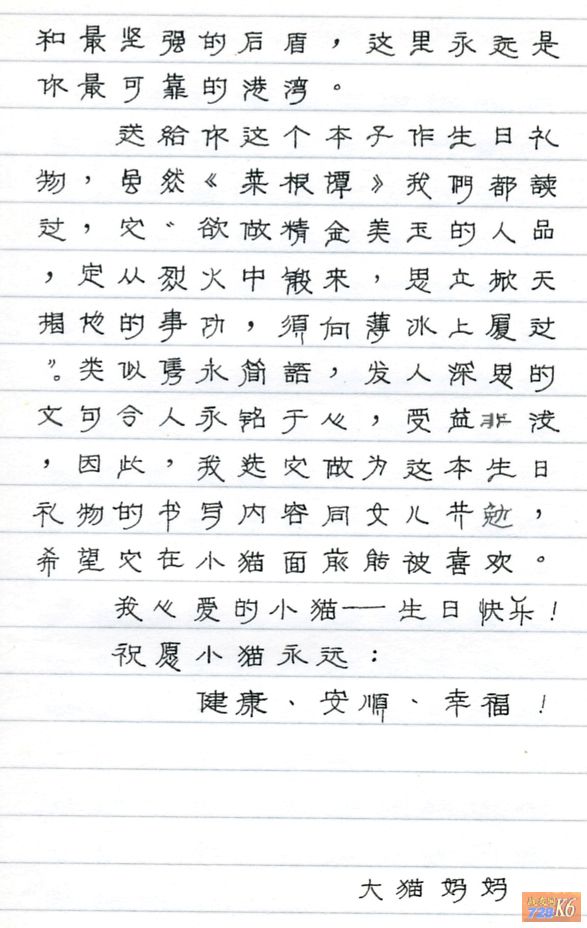 和最坚强的后盾，这里永远是
你最可靠的港湾。
送给你这个本子作生日礼
物，虽然《菜根谭》我們都读
过，它“欲做精金美玉的人品
，定从烈火中锻来，思立掀天
揭地的事功，須向薄冰上履过
”。类似隽永简語，发人深思的
文句令人永铭于心，受益非浅
，因此，我选它做为这本生日
礼物的书写内容同女儿共勉，
希望它在小猫面前能被喜欢。
我心爱的小猫——生日快乐！
祝愿小猫永远：
健康、安順、幸福！
大猫妈妈
728 K6